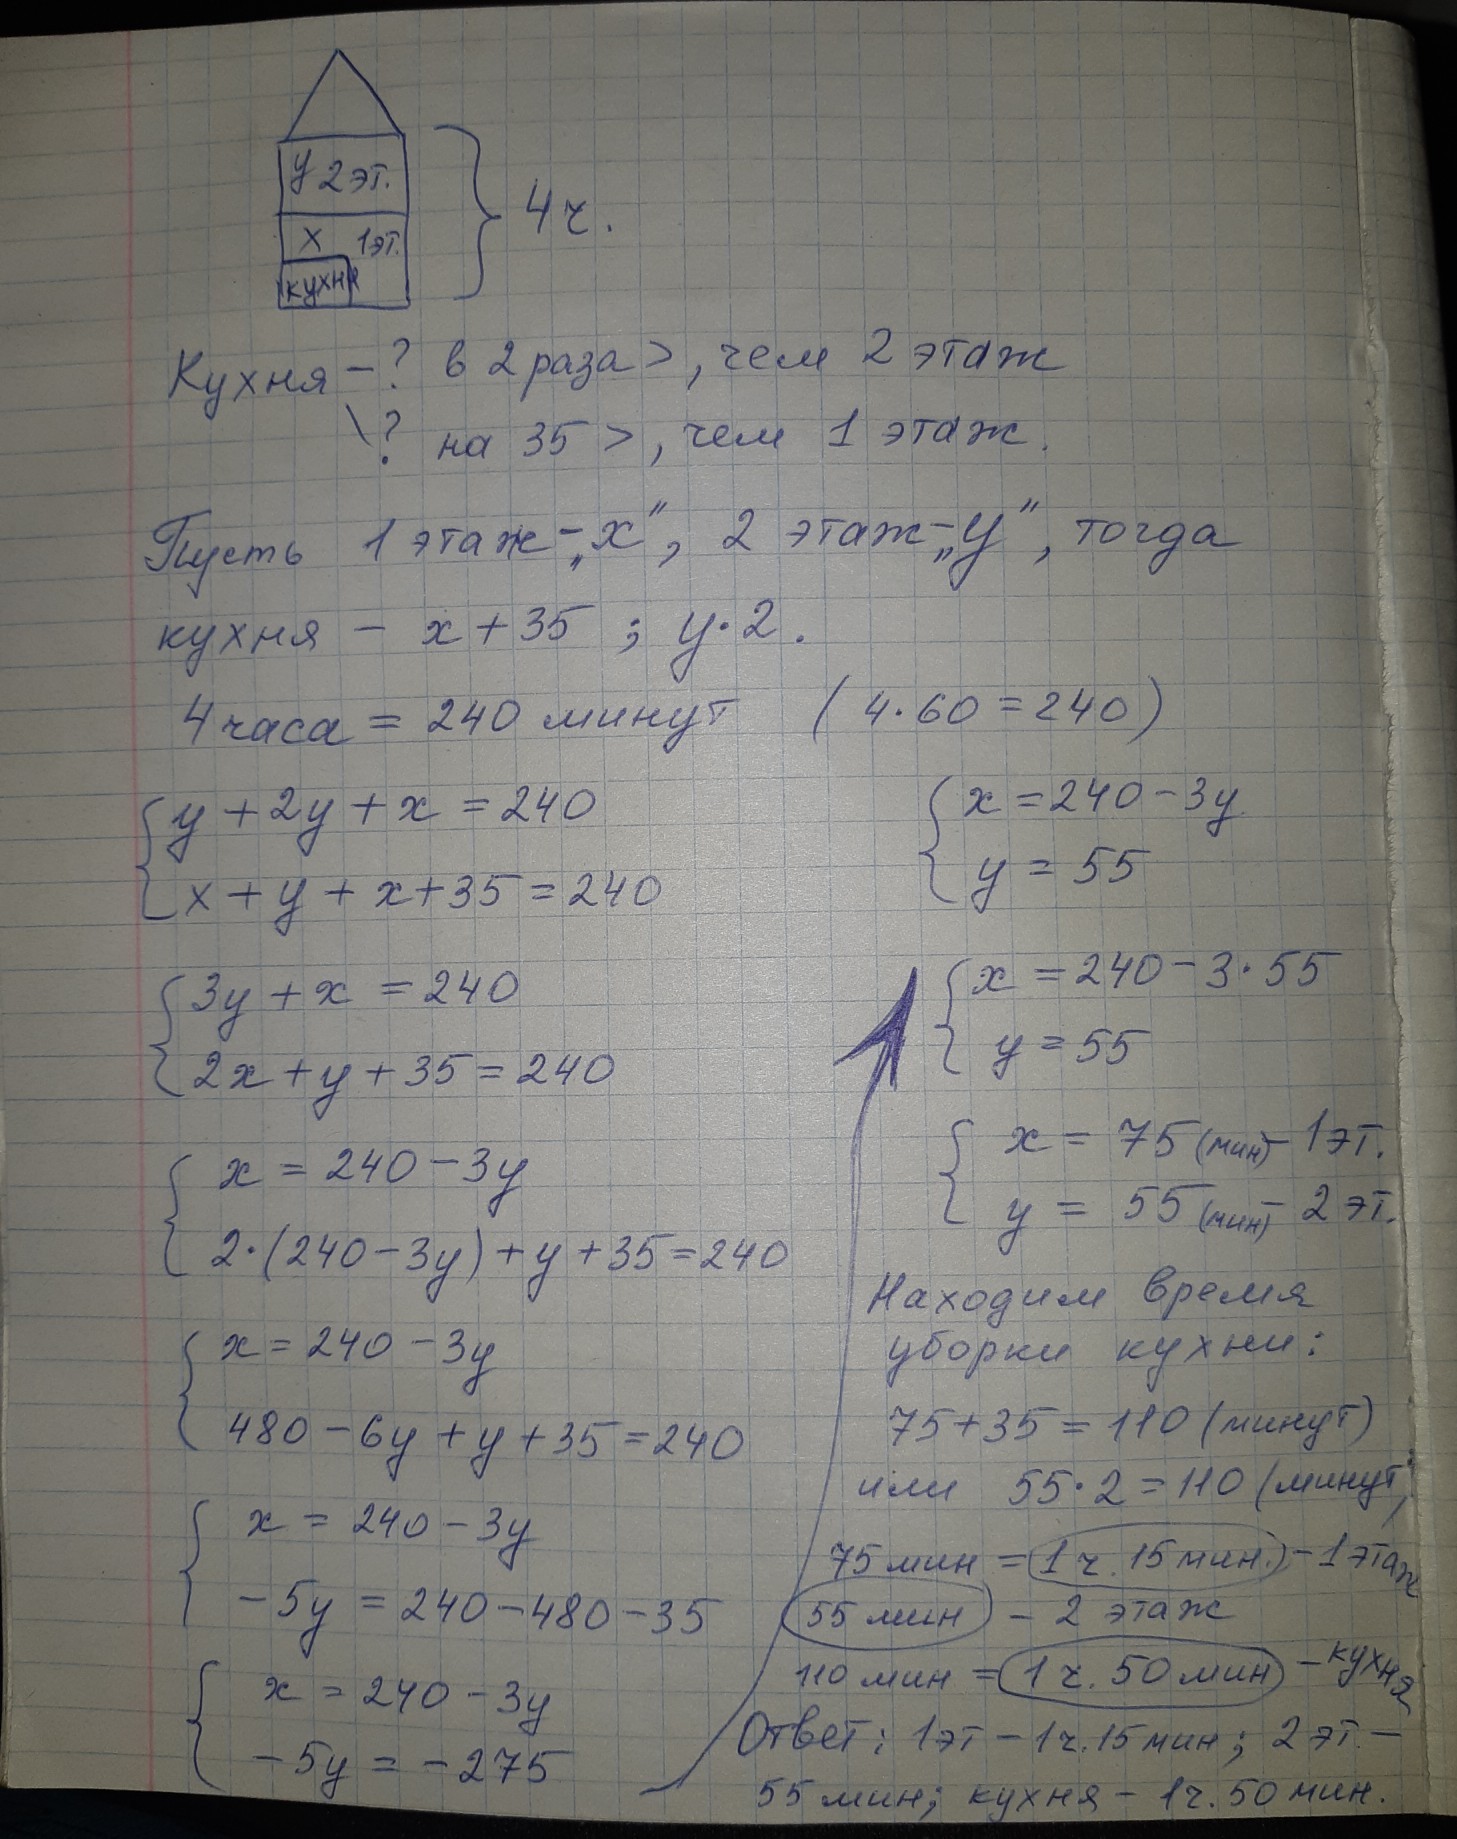 у 2 эт.
х 1эт.
кухня
4 ч.
Кухня – ? в 2 раза >, чем 2 этаж
\ ? на 35 >, чем 1 этаж.
Пусть 1 этаж – „х”, 2 этаж – „у”, тогда
кухня – х + 35 ; у · 2.
4 часа = 240 минут ( 4 · 60 = 240 )
{ у + 2у + х = 240
х + у + х + 35 = 240
{ 3у + х = 240
2х + у + 35 = 240
{ х = 240 – 3у
2 · (240 – 3у) + у + 35 = 240
{ х = 240 – 3у
480 – 6у + у + 35 = 240
{ х = 240 – 3у
– 5у = 240 – 480 – 35
{ х = 240 – 3у
– 5у = – 275
{ х = 240 – 3у
у = 55
{ х = 240 – 3 · 55
у = 55
{ х = 75 (мин) – 1 эт.
у = 55 (мин) – 2 эт.
Находим время
уборки кухни:
75 + 35 = 110 (минут)
или 55 · 2 = 110 (минут)
75 мин = 1 ч. 15 мин. – 1 этаж
55 мин – 2 этаж
110 мин = 1 ч. 50 мин – кухня
Ответ: 1 эт – 1 ч. 15 мин; 2 эт. –
55 мин; кухня – 1 ч. 50 мин.